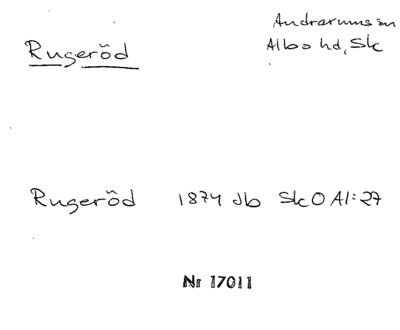 Rugeröd
Andrarums sn
Albo hd, Sk
Rugeröd 1874 Jb SkO Al: 27
Nr 17011